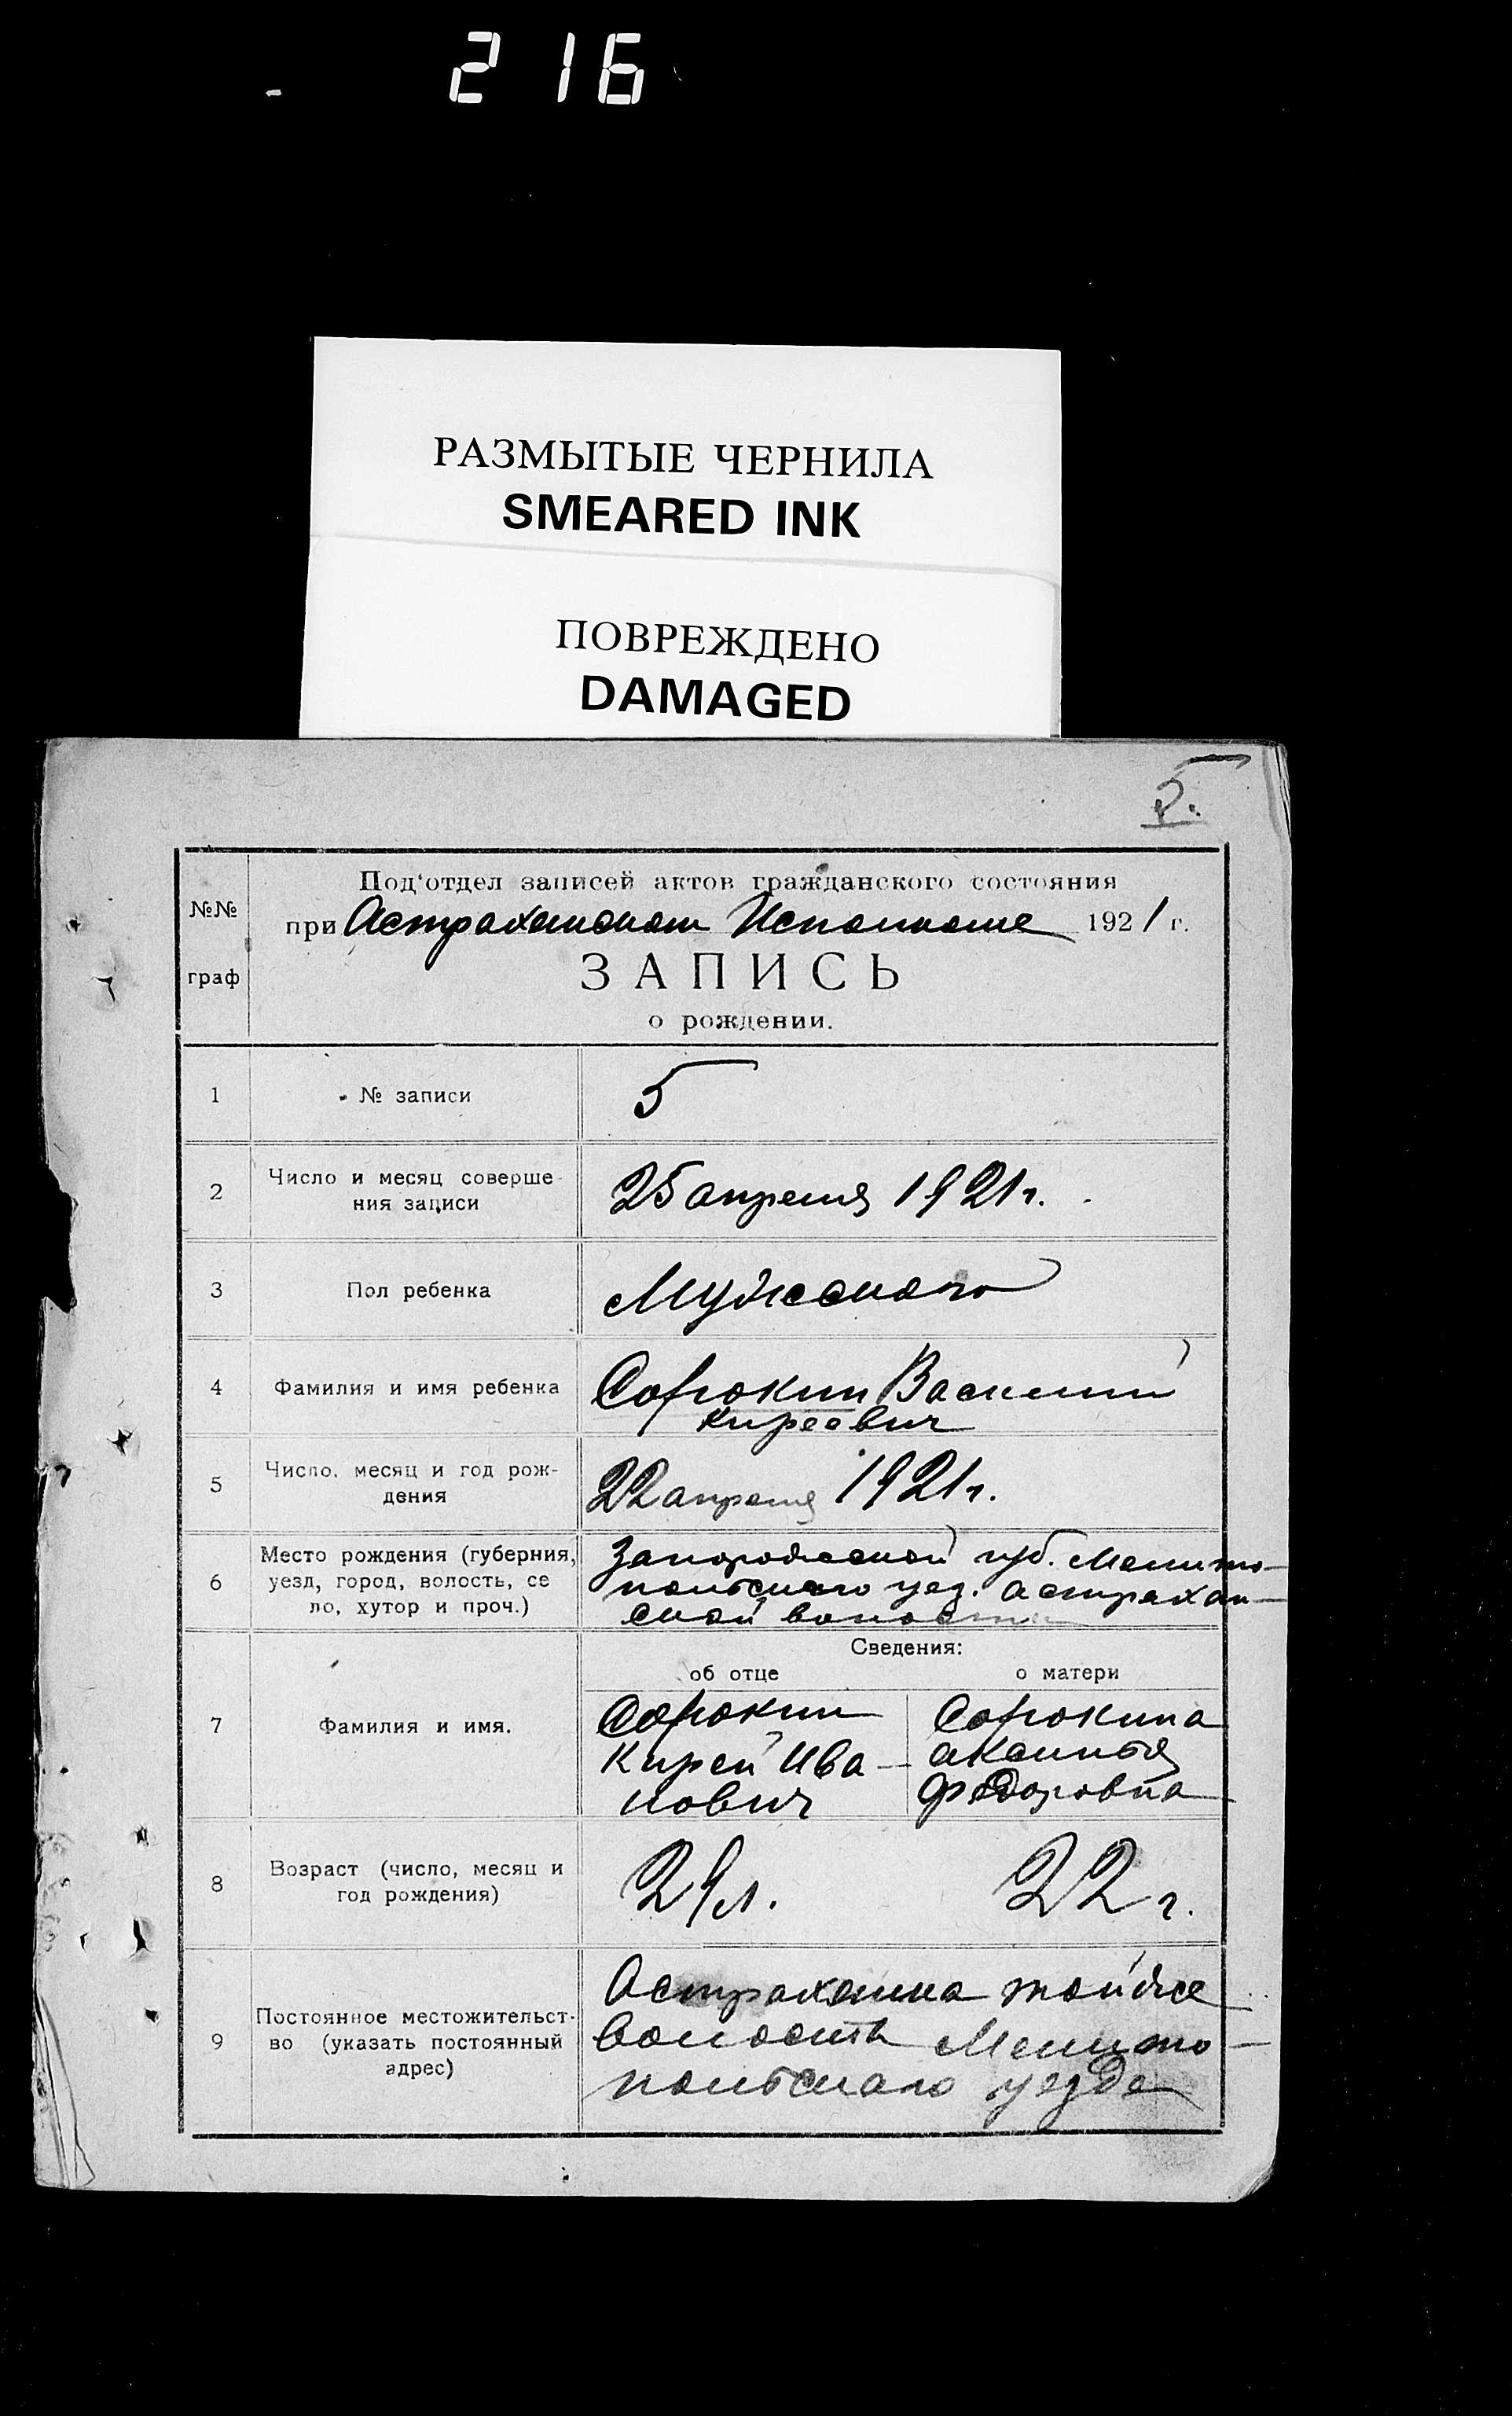 216
РАЗМЫТЫЕ ЧЕРНИЛА
SMEARED INK
ПОВРЕЖДЕНО
DAMAGED
5.
№№
граф
Под'отдел записей актов гражданского состояния
при Астраханском Исполкоме 1921 г.
ЗАПИСЬ
о рождении.
1 № записи 5
2 Число и месяц соверше-
ния записи
25 апреля 1921 г.
3 Пол ребенка Мужского
4 Фамилия и имя ребенка Сорокин Василий
Киреевич
5 Число, месяц и год рож-
дения
22 апреля 1921 г.
6 Место рождения (губерния,
уезд, город, волость, се
ло, хутор и проч.)
Запорожской губ. Мелито-
польского уез. Астрахан-
ской волости
Сведения:
об отце о матери
7 Фамилия и имя.
Сорокин
Кирей Ива-
нович
Сорокина
Аксинья
Федоровна
8 Возраст (число, месяц и
год рождения)
29 л. 22 г.
9 Постоянное местожительст-
во (указать постоянный
адрес)
Астраханка той же
волости Мелито-
польского уезда